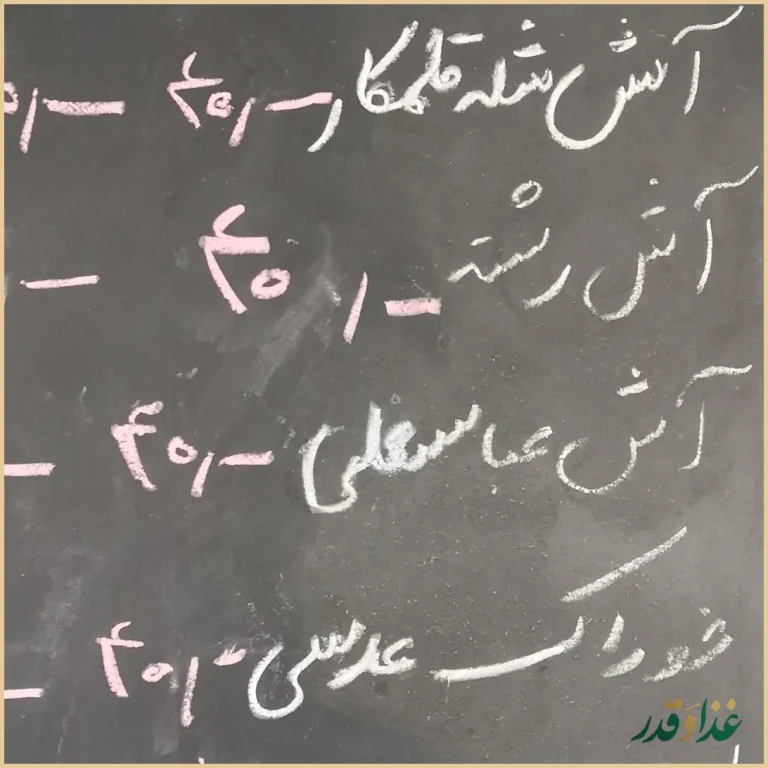 آش شله قلمکار ۴۰٫-
آش رشته ۴۰٫-
آش عباسعلی ۴۰٫-
خوراک عدسی ۴۰٫-
غذا و قدر